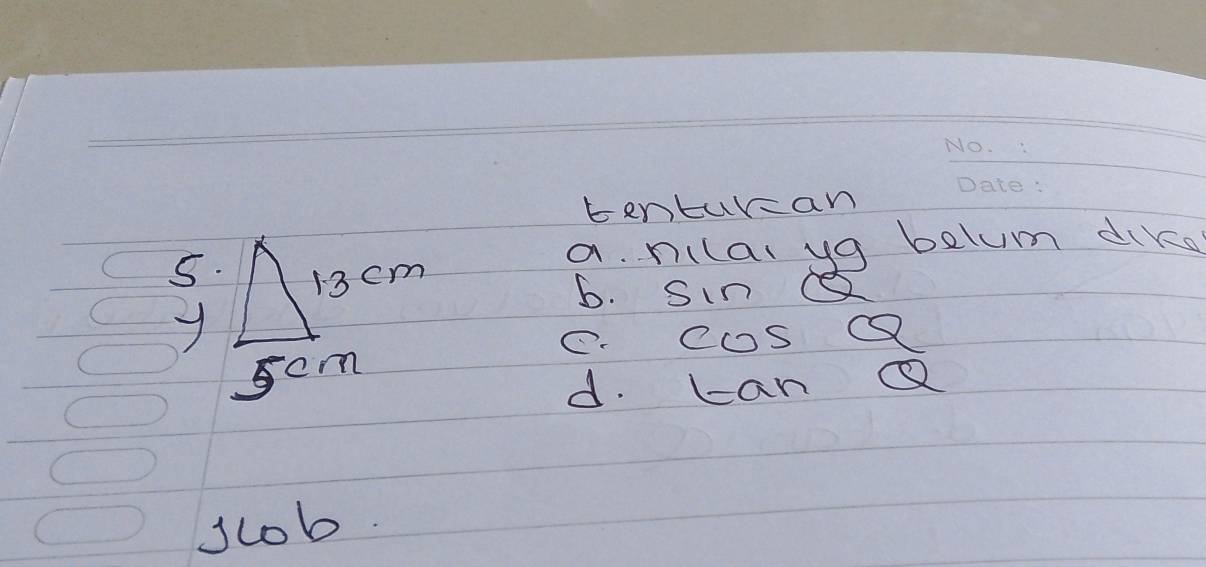 No. :
Date :
tentukan
5.
13 cm
y
5 cm
a. nilai yg belum dike
b. sin Q
c. cos Q
d. tan Q
Jwb.